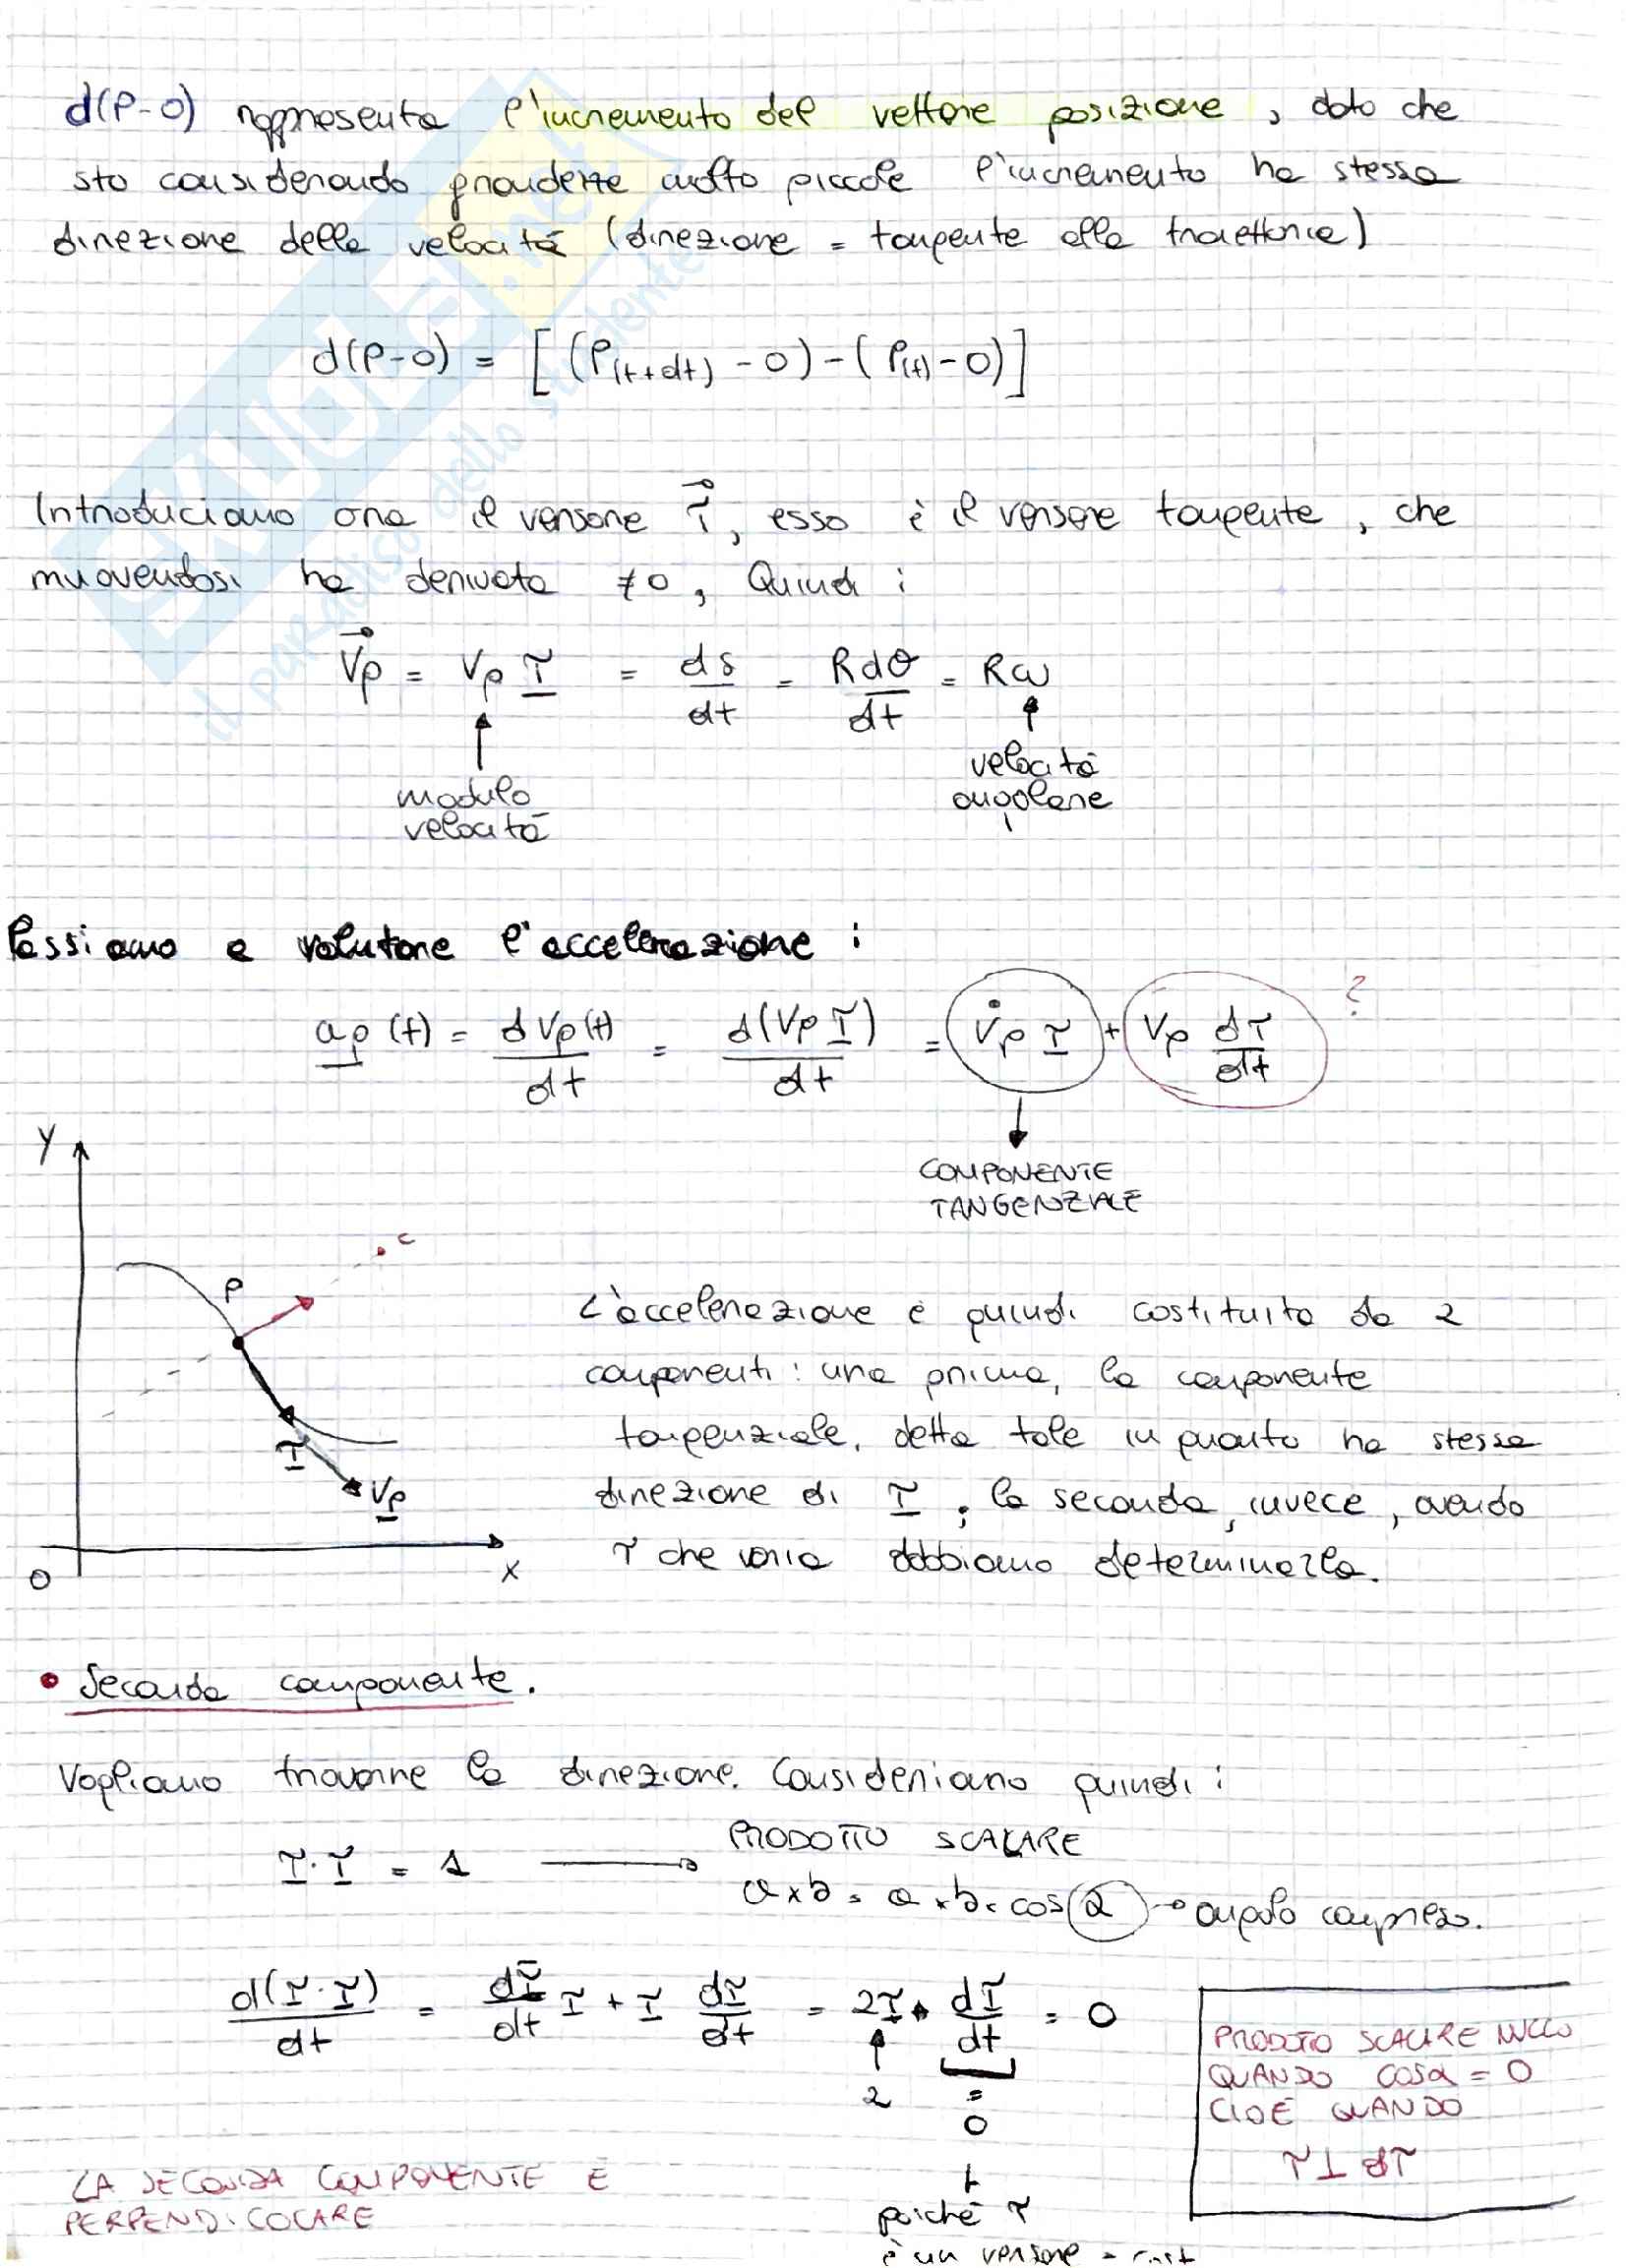 d(P-O) rappresenta l'incremento del vettore posizione, dato che
sto considerando grandezze molto piccole l'incremento ha stessa
direzione della velocità (direzione = tangente alla traiettoria)
d(P-O) = [(P(t+dt) - O) - (P(t) - O)]
Introduciamo ora il versore τ⃗, esso è il versore tangente, che
muovendosi ha derivata ≠0, Quindi:
V⃗p = Vp τ = ds/dt = Rdθ/dt = Rω
modulo velocità
velocità angolare
Passiamo a valutare l'accelerazione:
ap(t) = dVp(t)/dt = d(Vp τ)/dt = V̇p τ + Vp dτ/dt ?
COMPONENTE
TANGENZIALE
y
c
P
τ
Vp
O
x
L'accelerazione è quindi costituita da 2
componenti: una prima, la componente
tangenziale, detta tale in quanto ha stessa
direzione di τ; la seconda, invece, avendo
τ che varia dobbiamo determinarla.
• Seconda componente.
Vogliamo trovarne la direzione. Consideriamo quindi:
τ·τ = 1 → PRODOTTO SCALARE
a x b = a x b x cos α → angolo compreso.
d(τ·τ)/dt = dτ/dt τ + τ dτ/dt = 2τ · dτ/dt = 0
2
=
0
poiché τ
è un versore = cost
PRODOTTO SCALARE NULLO
QUANDO cosα = 0
CIOÈ QUANDO
τ ⊥ dτ
LA SECONDA COMPONENTE È
PERPENDICOLARE
SKUOLA.net
il paradiso dello studente